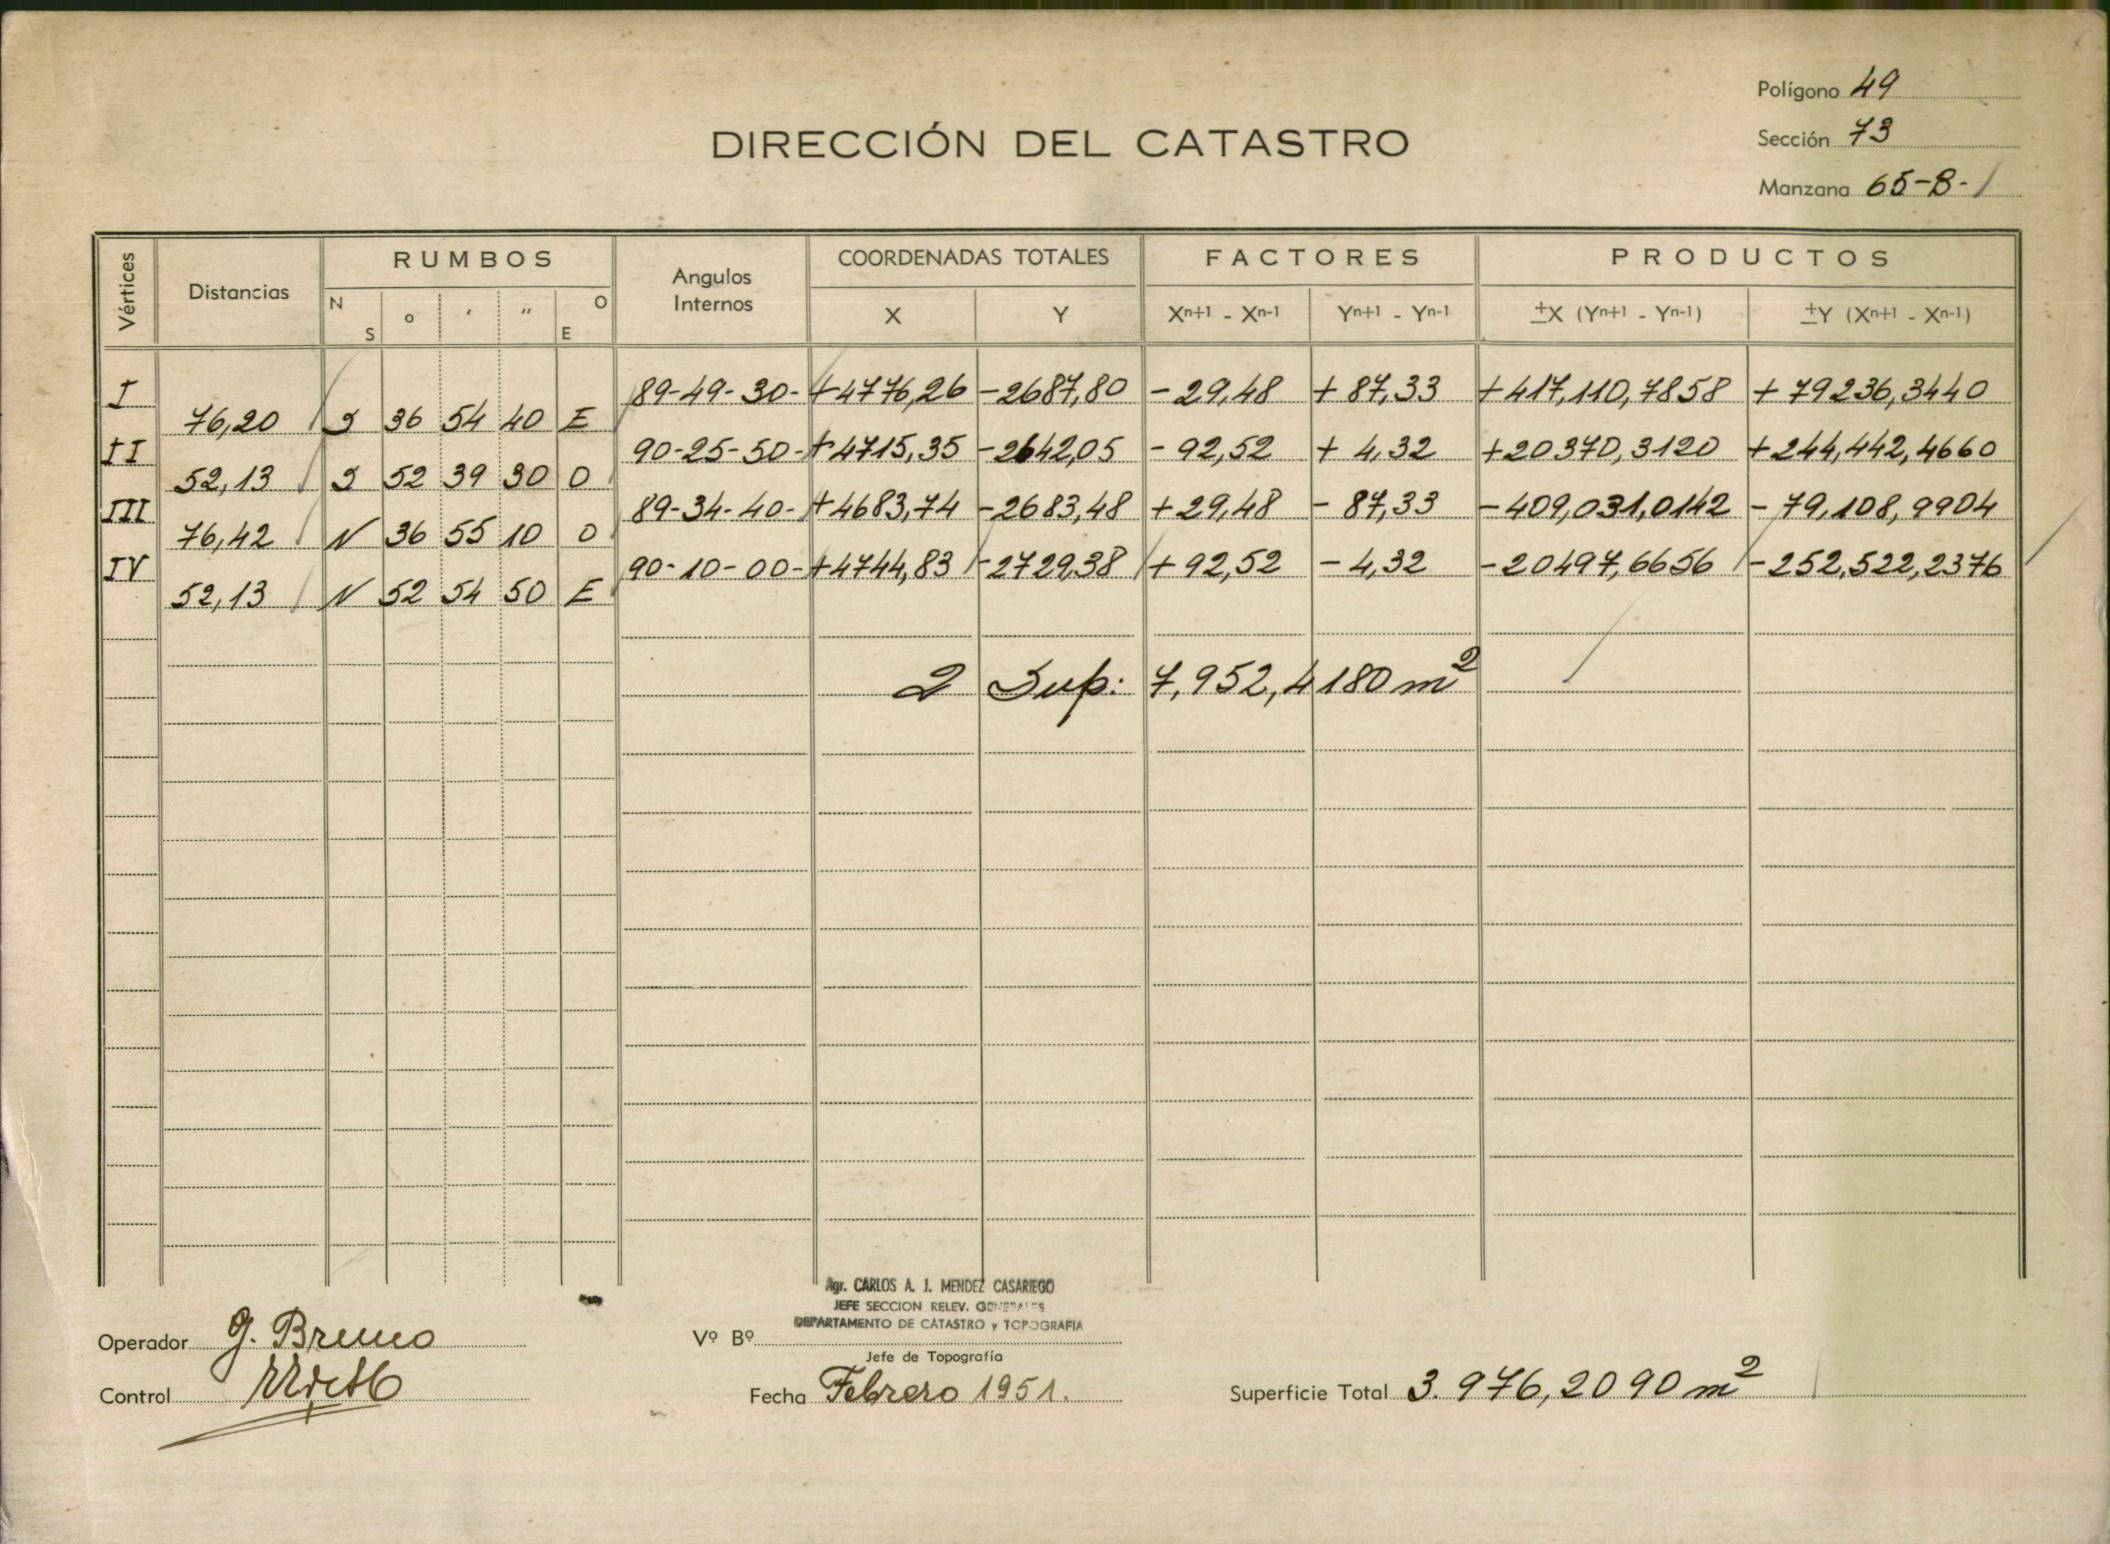 Polígono 49
DIRECCIÓN DEL CATASTRO
Sección 73
Manzana 65-B-1
Vértices Distancias RUMBOS Angulos Internos COORDENADAS TOTALES FACTORES PRODUCTOS
N S o ' " O E X Y Xn+1 - Xn-1 Yn+1 - Yn-1 ±X (Yn+1 - Yn-1) ±Y (Xn+1 - Xn-1)
I 89-49-30- +4776,26 -2687,80 -29,48 +87,33 +417,110,7858 +79236,3440
76,20 S 36 54 40 E
II 90-25-50- +4715,35 -2642,05 -92,52 +4,32 +20370,3120 +244,442,4660
52,13 S 52 39 30 O
III 89-34-40- +4683,74 -2683,48 +29,48 -87,33 -409,031,0142 -79,108,9904
76,42 N 36 55 10 O
IV 90-10-00- +4744,83 -2729,38 +92,52 -4,32 -20497,6656 -252,522,2376
52,13 N 52 54 50 E
2 Sup: 7,952,4180 m²
Agr. CARLOS A. J. MENDEZ CASARIEGO
JEFE SECCION RELEV. GENERALES
DEPARTAMENTO DE CATASTRO y TOPOGRAFIA
Operador G. Bruno Vº Bº
Jefe de Topografía
Control Fecha Febrero 1951. Superficie Total 3.976,2090 m²